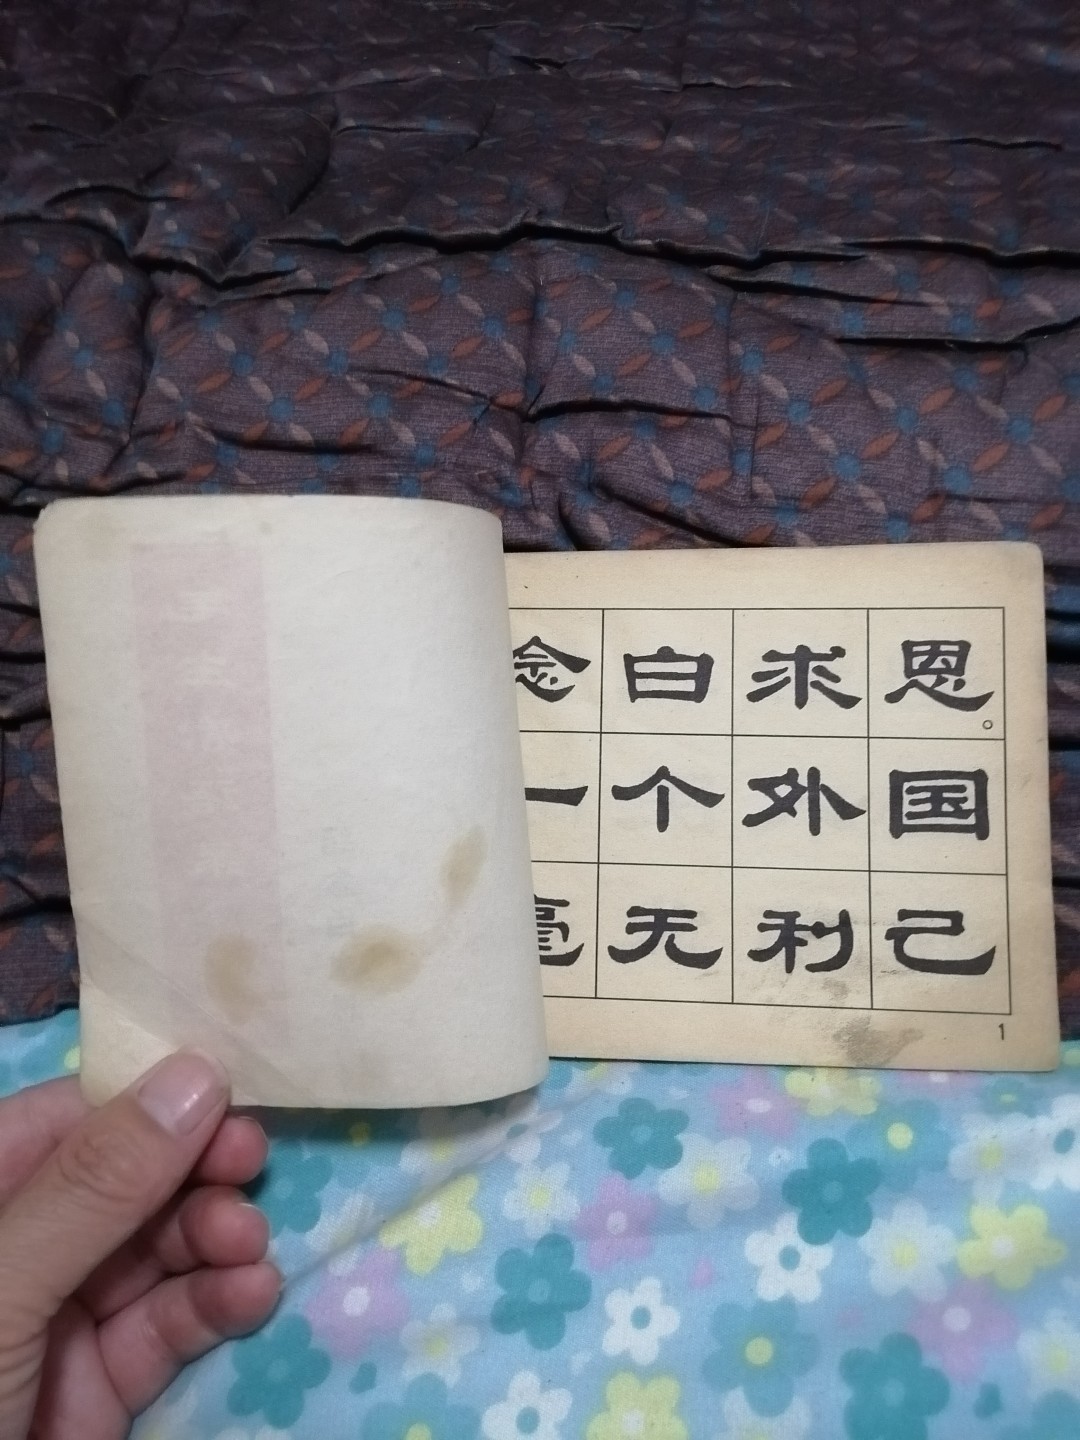 念白求恩。
一个外国
毫无利己
1